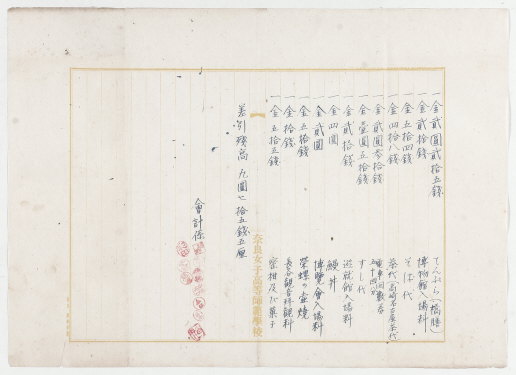 一金貳圓貳拾五錢 てんぷら(橋膳)
一金貳拾錢 博物館入場料
一金五拾四錢 そば代
一金四拾八錢 茶代高崎名古屋茶代
一金貳圓參拾錢 電車回數券
一金壹圓五拾錢 すし代
一金貳拾錢 遊就館入場料
一金四圓 鰻丼
一金貳圓 博覽會入場料
一金五拾錢 榮螺の壺燒
一金拾錢 長谷觀音拜觀料
一金五拾五錢 蜜柑及び菓子
差引殘高 九圓七拾五錢五厘
會計係
奈良女子高等師範學校